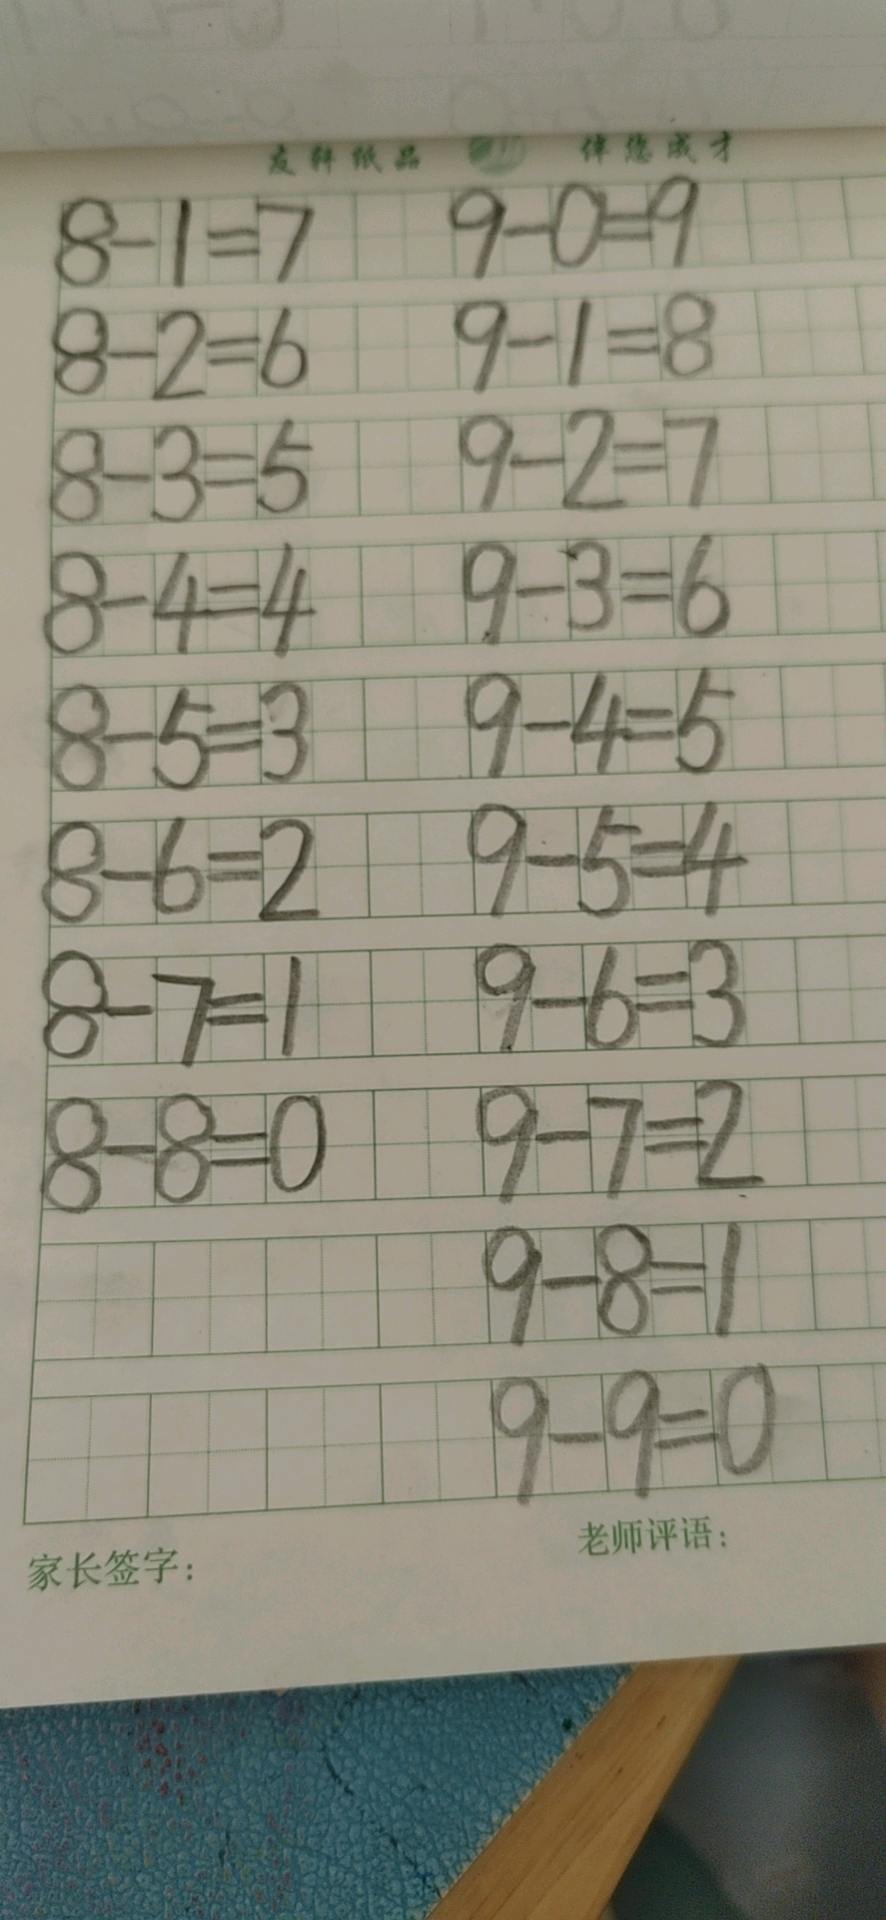 友轩纸品 伴您成才
8-1=7 9-0=9
8-2=6 9-1=8
8-3=5 9-2=7
8-4=4 9-3=6
8-5=3 9-4=5
8-6=2 9-5=4
8-7=1 9-6=3
8-8=0 9-7=2
9-8=1
9-9=0
家长签字： 老师评语：